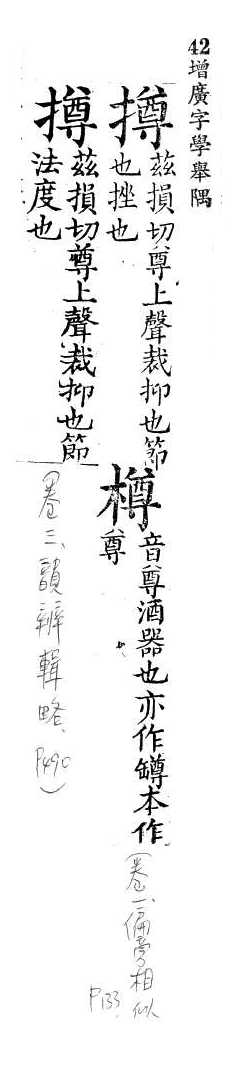 42增廣字學舉隅
撙 茲損切尊上聲裁抑也節
也挫也
樽 音尊酒器也亦作罇本作
尊
(卷一、偏旁相似
P133
撙 茲損切尊上聲裁抑也節
法度也
(卷三、韻辨輯略、
P490)